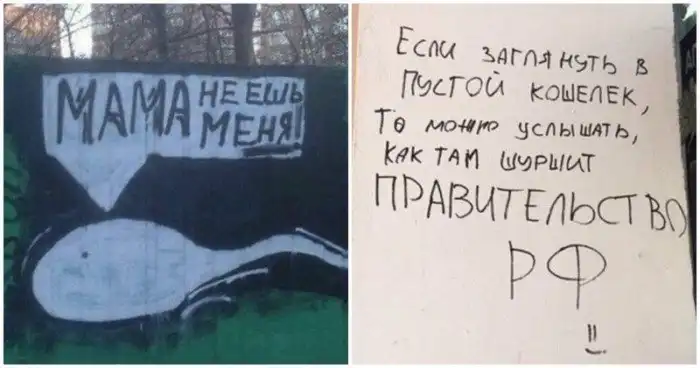 МАМА НЕ ЕШЬ
МЕНЯ!
ЕСЛИ ЗАГЛЯНУТЬ В
ПУСТОЙ КОШЕЛЕК,
ТО МОЖНО УСЛЫШАТЬ,
КАК ТАМ ШУРШИТ
ПРАВИТЕЛЬСТВО
РФ